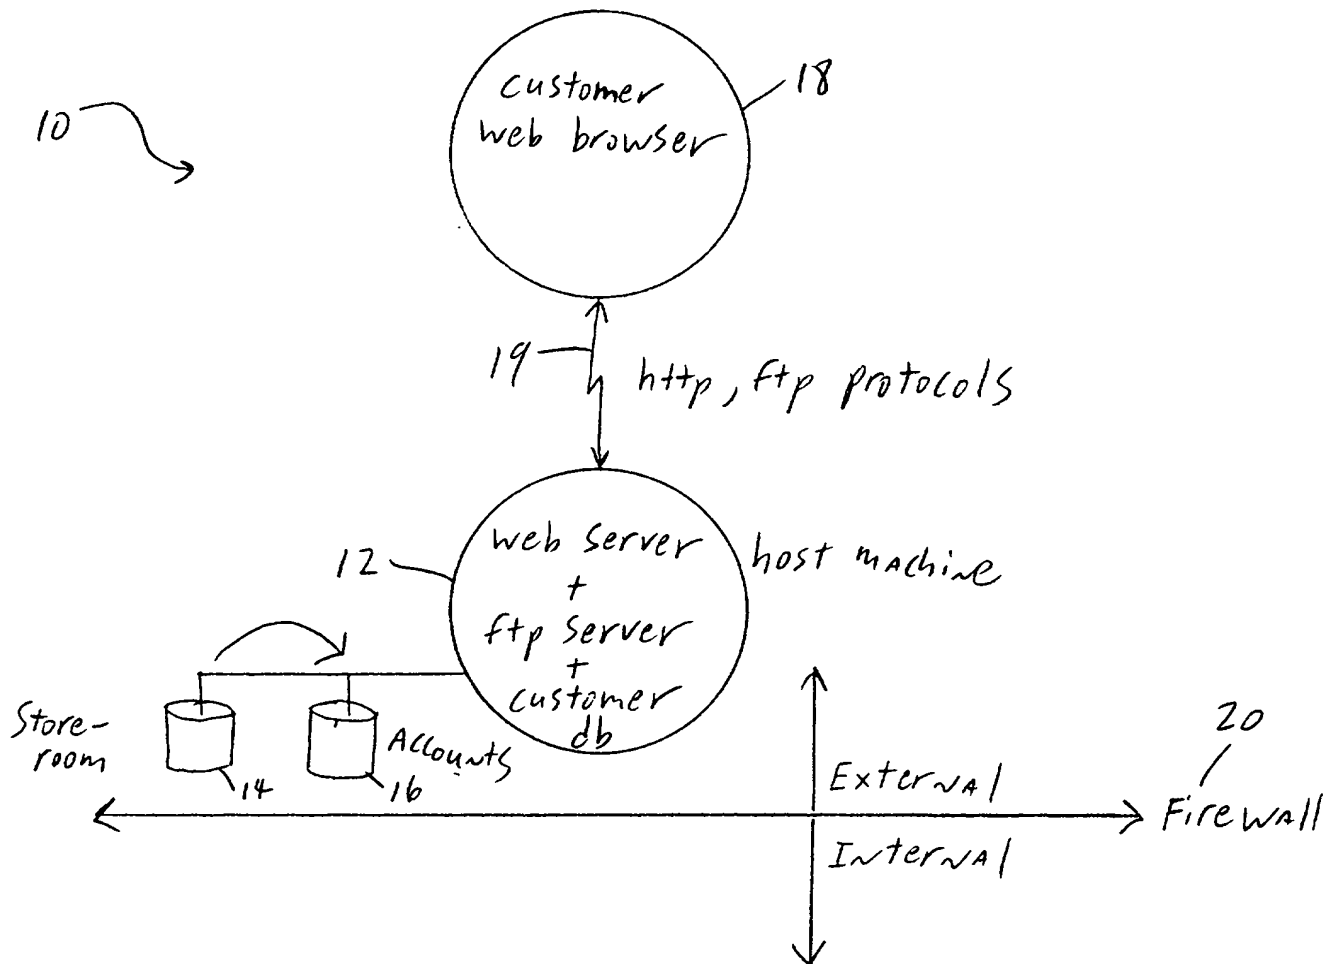 10
customer
web browser
18
19
http, ftp protocols
12
web server
+
ftp server
+
customer
db
host machine
Store-
room
14
Accounts
16
External
Internal
20
Firewall